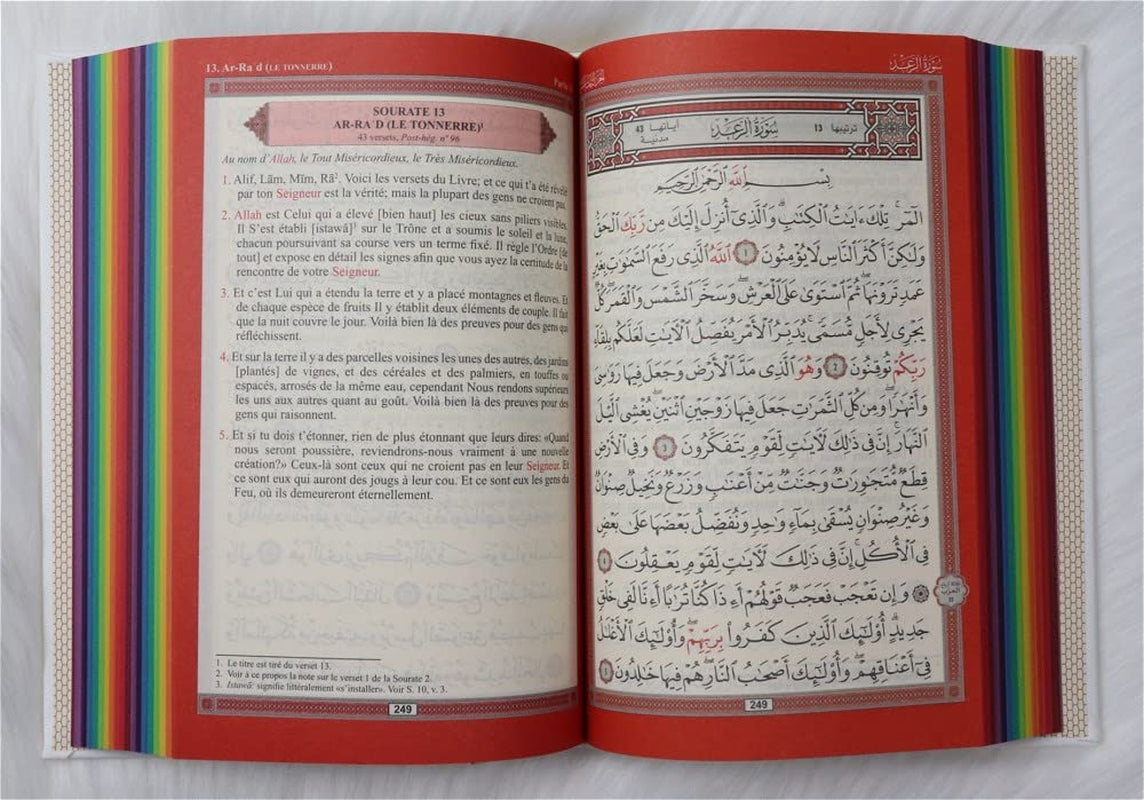 13. Ar-Ra`d (LE TONNERRE)
SOURATE 13
AR-RA`D (LE TONNERRE)¹
43 versets, Post-hég. n° 96
Au nom d'Allah, le Tout Miséricordieux, le Très Miséricordieux.
1. Alif, Lām, Mīm, Rā². Voici les versets du Livre; et ce qui t'a été révélé
par ton Seigneur est la vérité; mais la plupart des gens ne croient pas.
2. Allah est Celui qui a élevé [bien haut] les cieux sans piliers visibles.
Il S'est établi [istawâ]³ sur le Trône et a soumis le soleil et la lune,
chacun poursuivant sa course vers un terme fixé. Il règle l'Ordre [de
tout] et expose en détail les signes afin que vous ayez la certitude de la
rencontre de votre Seigneur.
3. Et c'est Lui qui a étendu la terre et y a placé montagnes et fleuves. Et
de chaque espèce de fruits Il y établit deux éléments de couple. Il fait
que la nuit couvre le jour. Voilà bien là des preuves pour des gens qui
réfléchissent.
4. Et sur la terre il y a des parcelles voisines les unes des autres, des jardins
[plantés] de vignes, et des céréales et des palmiers, en touffes ou
espacés, arrosés de la même eau, cependant Nous rendons supérieurs
les uns aux autres quant au goût. Voilà bien là des preuves pour des
gens qui raisonnent.
5. Et si tu dois t'étonner, rien de plus étonnant que leurs dires: «Quand
nous seront poussière, reviendrons-nous vraiment à une nouvelle
création?» Ceux-là sont ceux qui ne croient pas en leur Seigneur. Et
ce sont eux qui auront des jougs à leur cou. Et ce sont eux les gens du
Feu, où ils demeureront éternellement.
1. Le titre est tiré du verset 13.
2. Voir à ce propos la note sur le verset 1 de la Sourate 2.
3. Istawâ: signifie littéralement «s'installer». Voir S. 10, v. 3.
249
سُورَةُ الرَّعْدِ
ترتيبها 13
سُورَةُ الرَّعْدِ
آياتها 43
مدنية
بِسْمِ اللَّهِ الرَّحْمَٰنِ الرَّحِيمِ
الٓمٓرۚ تِلْكَ ءَايَٰتُ الْكِتَٰبِۗ وَالَّذِىٓ أُنزِلَ إِلَيْكَ مِن رَّبِّكَ الْحَقُّ
وَلَٰكِنَّ أَكْثَرَ النَّاسِ لَا يُؤْمِنُونَ ١ اللَّهُ الَّذِى رَفَعَ السَّمَٰوَٰتِ بِغَيْرِ
عَمَدٍ تَرَوْنَهَاۖ ثُمَّ اسْتَوَىٰ عَلَى الْعَرْشِۖ وَسَخَّرَ الشَّمْسَ وَالْقَمَرَۖ كُلٌّ
يَجْرِى لِأَجَلٍ مُّسَمًّىۚ يُدَبِّرُ الْأَمْرَ يُفَصِّلُ الْآيَٰتِ لَعَلَّكُم بِلِقَآءِ
رَبِّكُمْ تُوقِنُونَ ٢ وَهُوَ الَّذِى مَدَّ الْأَرْضَ وَجَعَلَ فِيهَا رَوَٰسِىَ
وَأَنْهَٰرًاۖ وَمِن كُلِّ الثَّمَرَٰتِ جَعَلَ فِيهَا زَوْجَيْنِ اثْنَيْنِۖ يُغْشِى الَّيْلَ
النَّهَارَۚ إِنَّ فِى ذَٰلِكَ لَآيَٰتٍ لِّقَوْمٍ يَتَفَكَّرُونَ ٣ وَفِى الْأَرْضِ
قِطَعٌ مُّتَجَٰوِرَٰتٌ وَجَنَّٰتٌ مِّنْ أَعْنَٰبٍ وَزَرْعٌ وَنَخِيلٌ صِنْوَانٌ
وَغَيْرُ صِنْوَانٍ يُسْقَىٰ بِمَآءٍ وَٰحِدٍ وَنُفَضِّلُ بَعْضَهَا عَلَىٰ بَعْضٍ
فِى الْأُكُلِۚ إِنَّ فِى ذَٰلِكَ لَآيَٰتٍ لِّقَوْمٍ يَعْقِلُونَ ٤
۞ وَإِن تَعْجَبْ فَعَجَبٌ قَوْلُهُمْ أَءِذَا كُنَّا تُرَٰبًا أَءِنَّا لَفِى خَلْقٍ
جَدِيدٍۗ أُو۟لَٰٓئِكَ الَّذِينَ كَفَرُوا۟ بِرَبِّهِمْۖ وَأُو۟لَٰٓئِكَ الْأَغْلَٰلُ
فِىٓ أَعْنَاقِهِمْۖ وَأُو۟لَٰٓئِكَ أَصْحَٰبُ النَّارِۖ هُمْ فِيهَا خَٰلِدُونَ ٥
249